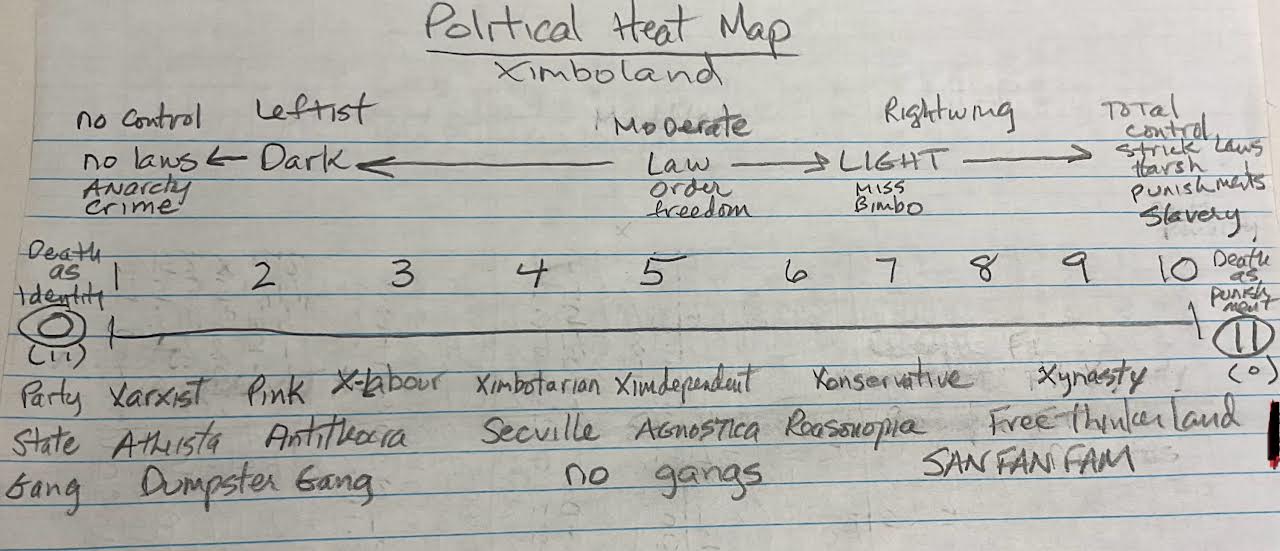 Political Heat Map
Ximboland
no control Leftist Moderate Rightwing Total control,
no laws ← Dark ← Law → LIGHT → Strick Laws
Anarchy order Miss Harsh
crime freedom Bimbo punishments
Slavery,
Death as Identity 1 2 3 4 5 6 7 8 9 10 Death as punishment
0 11
(11) (0)
Party Xarxist Pink X-labour Ximbotarian Ximdependent Xonservative Xynasty
State Atheista Antitheocra Secville Agnostica Reasonopia Free thinkerland
Gang Dumpster Gang no gangs SAN FAN FAM